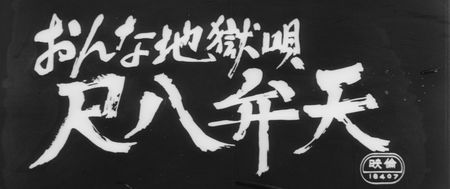 おんな地獄唄
尺八弁天
映倫
18407